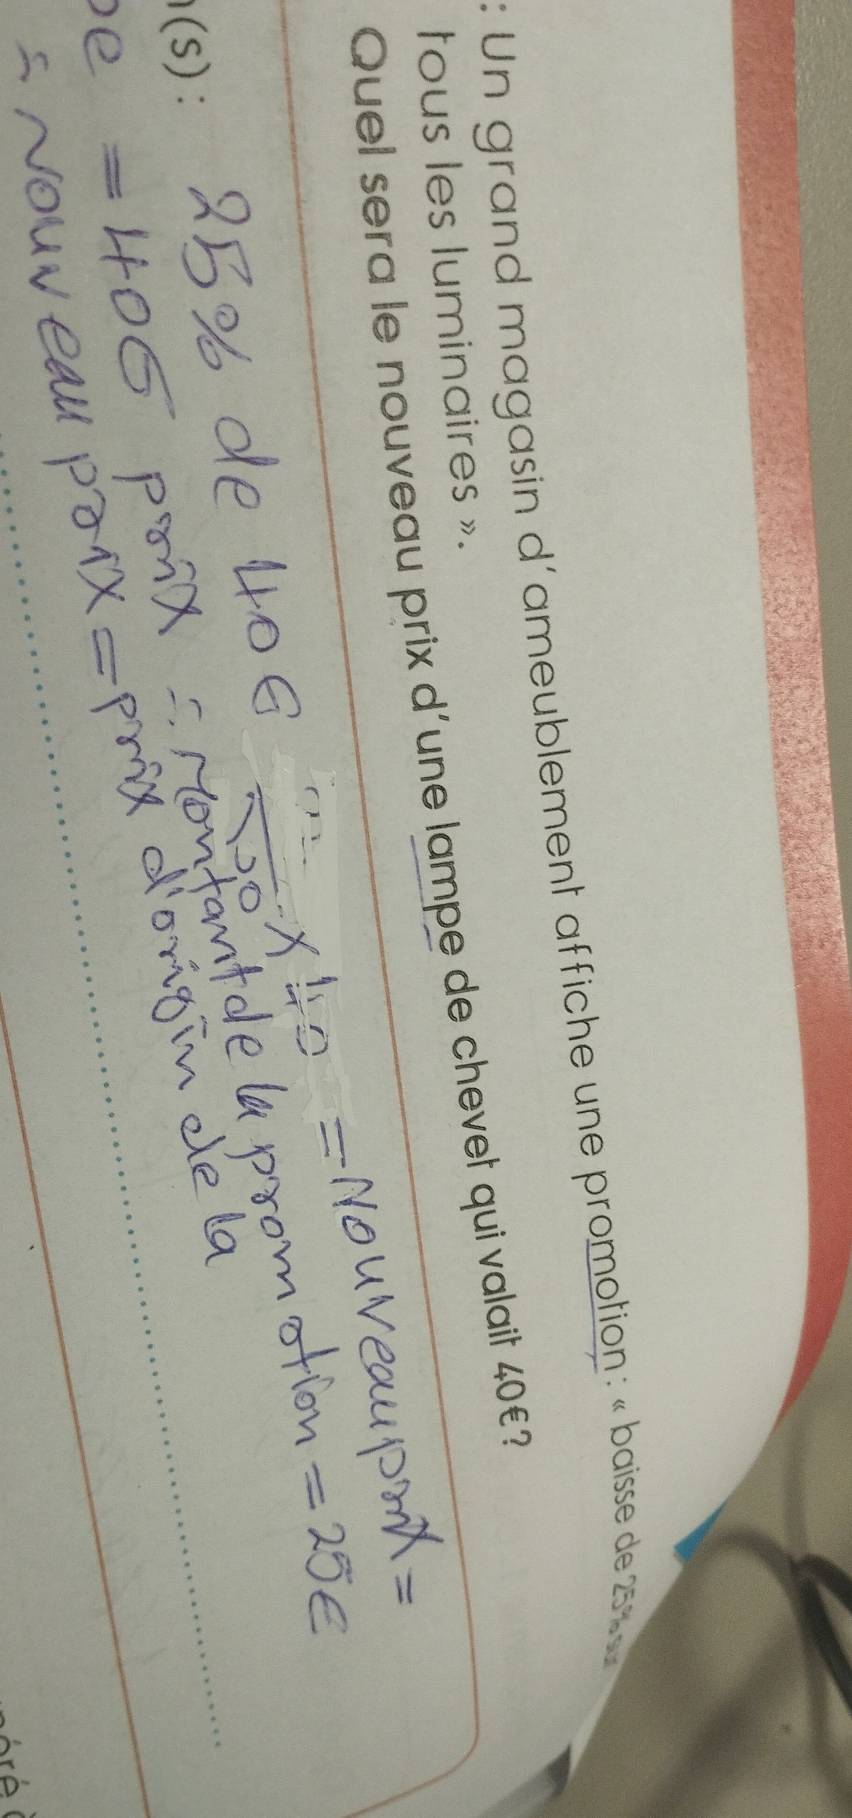 : Un grand magasin d'ameublement affiche une promotion : « baisse de 25% sur
tous les luminaires ».
Quel sera le nouveau prix d'une lampe de chevet qui valait 40€?
(s) : 25% de 40€ × 40 = Nouveau prix =
= 40€ prix = Montant de la promotion = 25€
= Nouveau prix = prix d'origin de la